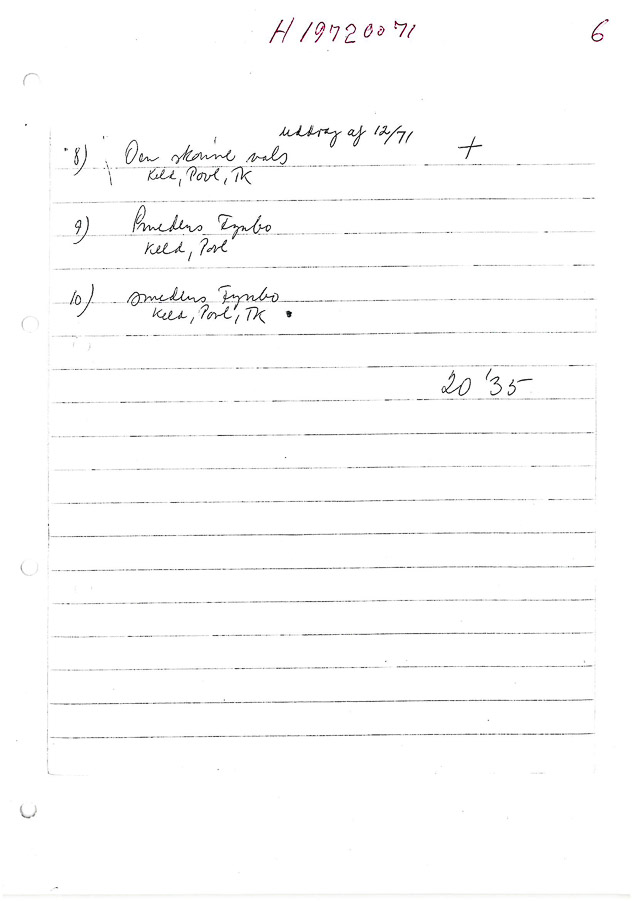 H 19720071 6
uddrag af 12/71
8) Den skønne vals +
Keld, Povl, TK
9) Smedens Fynbo
Keld, Povl
10) Smedens Fynbo
Keld, Povl, TK
20'35